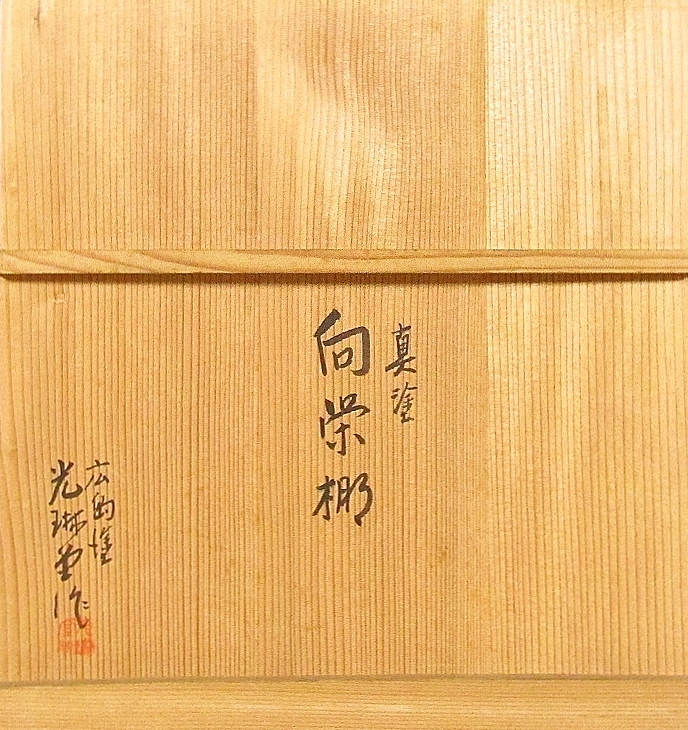 真塗
向栄棚
広島住
光琳堂作